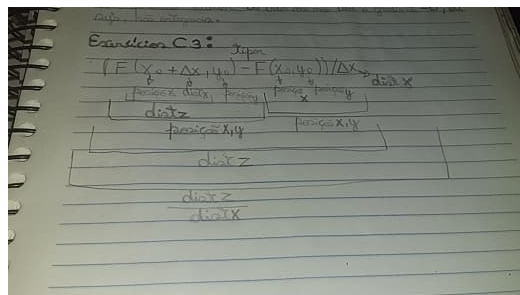 Exercícios C3:
tipos
(F(x₀ + Δx, y₀) - F(x₀, y₀))/Δx → dist x
posição x dist x, posição y posição x posição y
dist z
posição x, y posição x, y
dist z
dist z
dist x